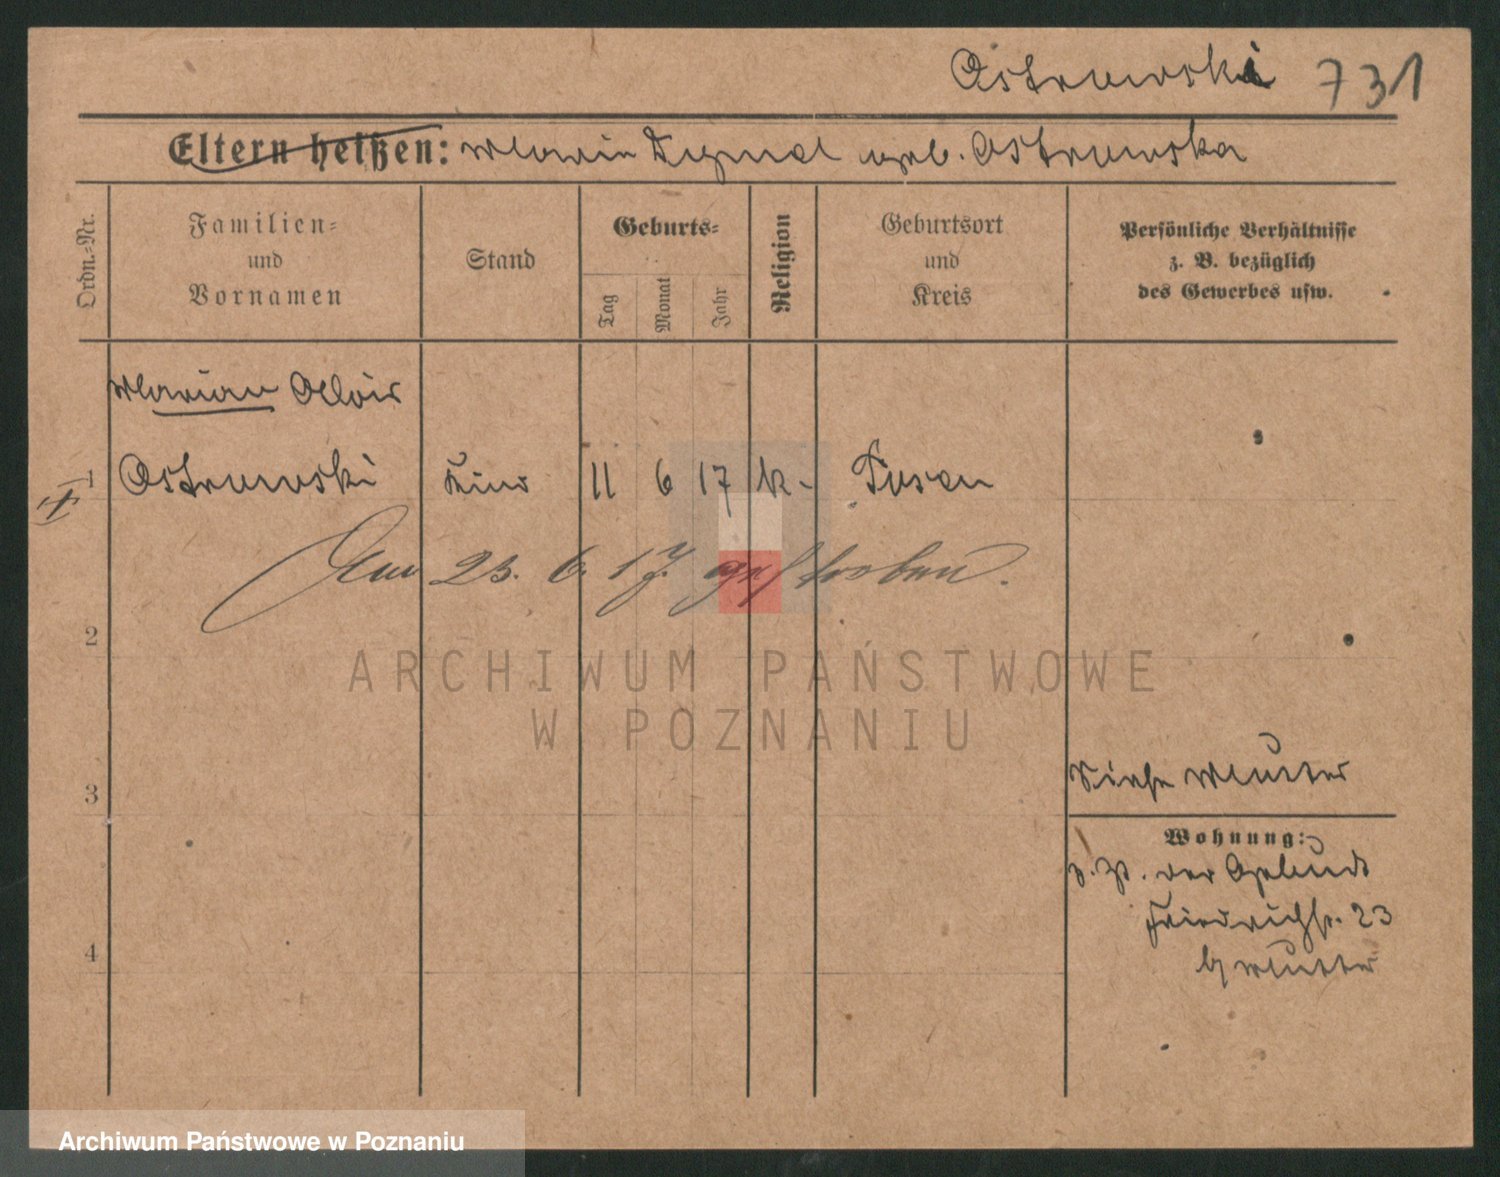 Ostrowski 731
Eltern heißen: Maria Zygmal geb. Ostrowska
Ordn.-Nr.
Familien-
und
Vornamen
Stand
Geburts-
Tag
Monat
Jahr
Religion
Geburtsort
und
Kreis
Persönliche Verhältnisse
z. B. bezüglich
des Gewerbes usw.
Marian Alois
1 Ostrowski Kind 11 6 17 k. Posen
Am 23. 6. 17. gestorben.
2
3
4
Siehe Mutter
Wohnung:
z. Zt. der Geburt
Friedrichstr. 23
b/ Mutter
ARCHIWUM PAŃSTWOWE
W POZNANIU
Archiwum Państwowe w Poznaniu